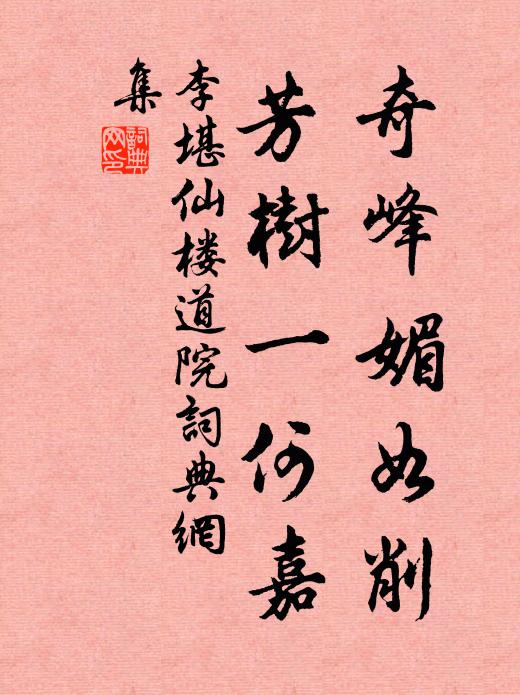 奇峰媚如削
芳樹一何嘉
李堪仙楼道院詞典網
集
詞典
网印